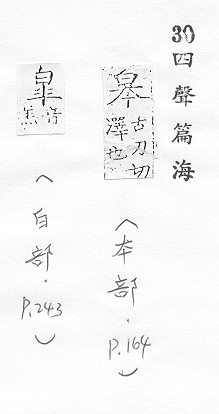 30四聲篇海
皋
古刀切
澤也
（夲部．P.164）
音
羔
（白部．P.243）